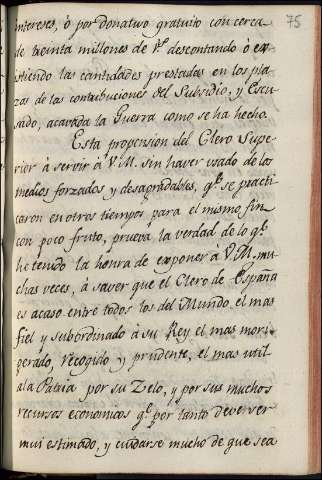 75
intereses, ò por donativo gratuito con cerca
de treinta millones de r.s descontando ò ex
sistiendo las cantidades prestadas en los pla
zas de las contribuciones del Subsidio, y Escu
sado, acavada la Guerra como se ha hecho.
Esta propension del Clero Supe
rior à servir à V. M. sin haver usado de los
medios forzados y desagradables, q.e se practi
caron en otros tiempos para el mismo fin
con poco fruto, prueva la verdad de lo q.e
he tenido la honra de exponer à V. M. mu
chas veces, à saver que el Clero de España
es acaso entre todos los del Mundo el mas
fiel y subordinado à su Rey el mas mori
gerado, recogido y prudente, el mas util
a la Patria por su Zelo, y por sus muchos
recursos economicos q.e por tanto deve ser
mui estimado, y cuidarse mucho de que sea